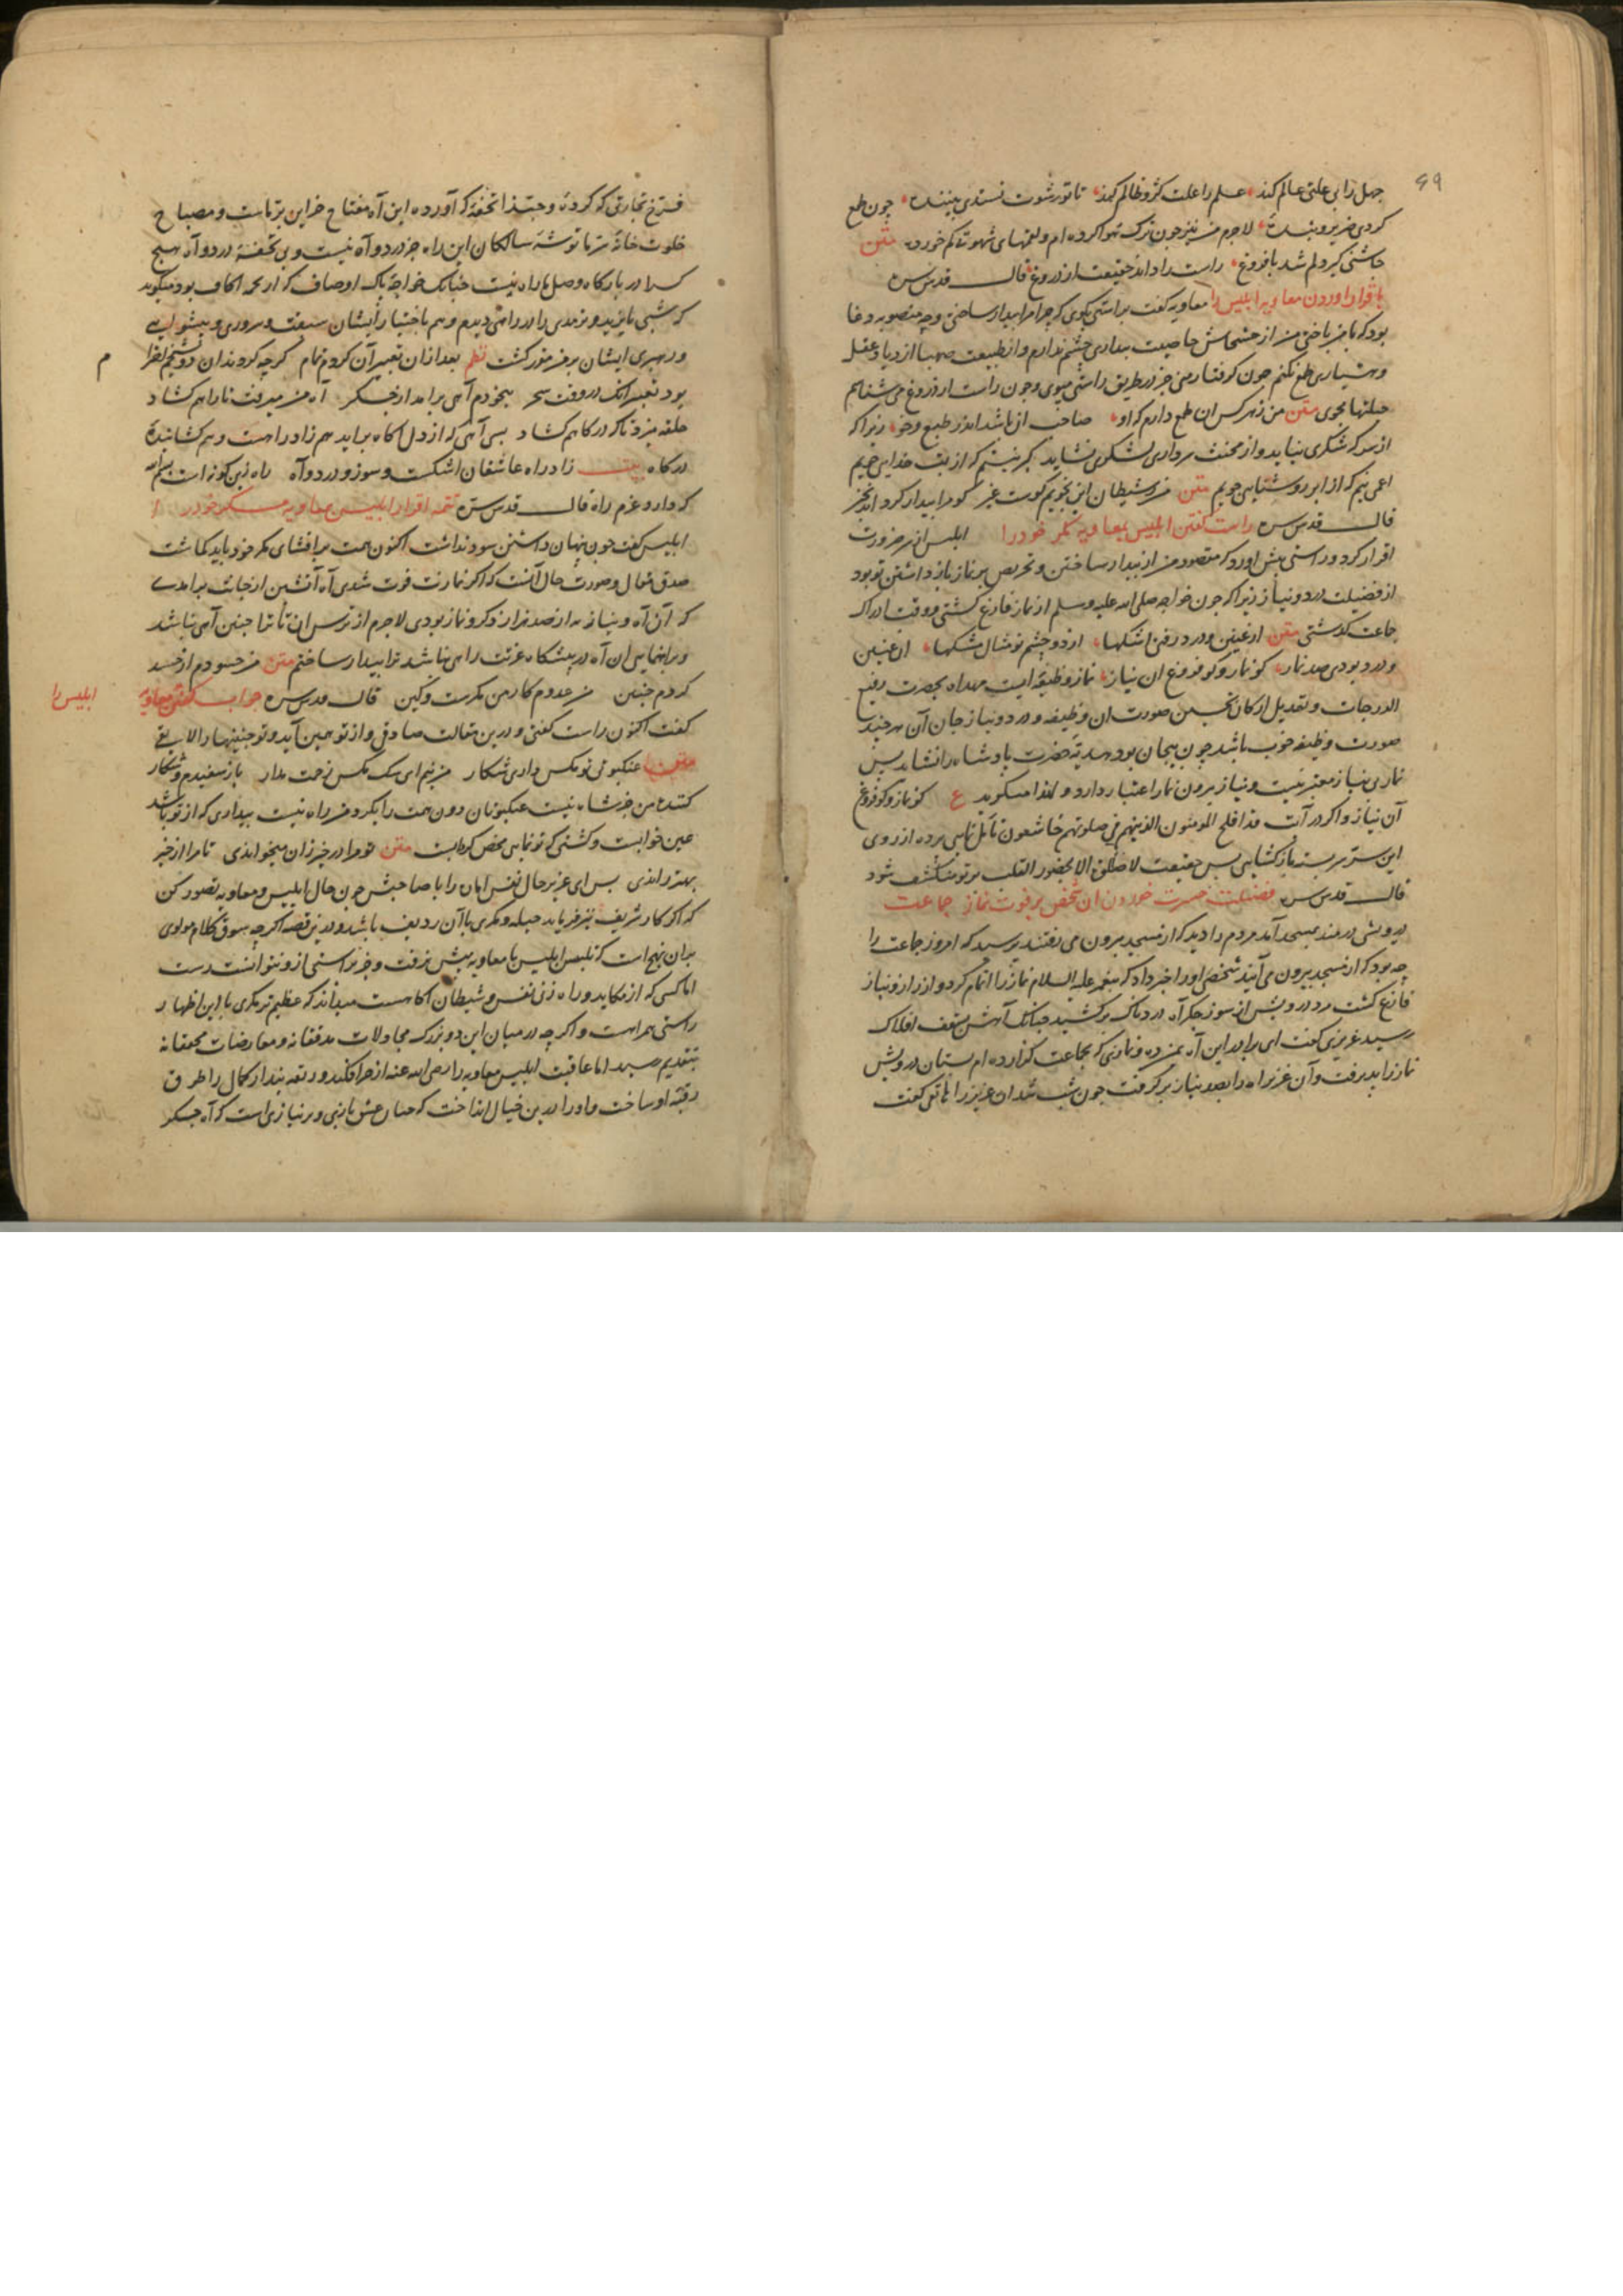 ۶۹
جهل را بی علتی عالم کند علم را علت کژ و ظالم کند تا تو رشوت نستدی بیننده چون طمع
کردی ضریر و بنده لاجرم من نیز چون ترک هوا کرده ام و لقمهای شهوت کم خورده متن
چاشنی گیر دلم شد با فروغ راست را داند حقیقت از دروغ قال قدس سره
باقرار اوردن معاویه ابلیس را معاویه گفت براستی بکوی که چرا مرا بیدار ساختی و چه مقصود و دغا
بود که با من باختی من از خشخاش خاصیت بیداری چشم ندارم و از طبیعت صهبا ازدیاد عقل
و هشیاری طمع نکنم چون گرفتار منی جز در طریق راستی مپوی و چون راست از دروغ می شناسم
حیلتها مجوی متن من ز هر کس آن طمع دارم که او صاحب آن باشد اندر طبع و خو زیرا که
از سرکه شکری نیاید و از مخنث سرداری لشکری نشاید گبر نیستم که از بت خدایی جویم
اعمی نیم که از ابر روشنایی جویم متن من ز شیطان این نجویم کوست غیر کو مرا بیدار گرداند بخیر
قال قدس سره راست گفتن ابلیس بمعاویه مکر خود را ابلیس از سر ضرورت
اقرار کرد و راستی پیش اورد که مقصود من از بیدار ساختن و تحریص بر نماز باز داشتن تو بود
از فضیلت درد و نیاز زیرا که چون خواجه صلی الله علیه و سلم از نماز فارغ گشتی و وقت ادراک
جماعت گذشتی متن از غبین و درد رفتی اشکها از دو چشم تو مثال مشکها آن غبین
و درد بودی صد نماز کو نماز و کو فروغ آن نیاز نماز وظیفه ایست مهداه بحضرت رفیع
الدرجات و تعدیل ارکان تحسین صورت ان وظیفه و درد و نیاز جان آن هر چند
صورت وظیفه خوب باشد چون بیجان بود هدیه حضرت پادشاه را نشاید پس
نماز بی نیاز معتبر نیست و نیاز بیرون نماز اعتبار دارد و لهذا میگوید ع کو نماز و کو فروغ
آن نیاز و اگر در آیت قد افلح المومنون الذینهم فی صلوتهم خاشعون تأمل نمایی پرده از روی
این ستر سربسته باز گشایی پس حقیقت لا صلوة الا بحضور القلب بر تو منکشف شود
قال قدس سره فضیلت حسرت خوردن ان شخص بر فوت نماز جماعت
درویشی دردمند بمسجد آمد مردم را دید که از مسجد بیرون می رفتند پرسید که امروز جماعت را
چه بود که از مسجد بیرون می آیند شخصی او را خبر داد که پیغمبر علیه السلام نماز را اتمام کرد و از راز و نیاز
فارغ گشت مرد درویش از سوز جگر آه دردناک برکشید چنانکه آهش بسقف افلاک
رسید عزیزی گفت ای برادر این آه بمن ده و نمازی که بجماعت گزارده ام بستان درویش
نماز را بپذیرفت و آن عزیز آه را بصد نیاز برگرفت چون شب شد ان عزیز را هاتفی گفت
فرخ تجارتی که کرده و حبذا تحفه که آورده این آه مفتاح خزاین تر ماست و مصباح
خلوت خانه ماست توشه سالکان این راه جز درد و آه نیست و بی تحفه درد و آه هیچ
کس را در بارگاه وصل ما راه نیست چنانک خواجه پاک اوصاف
که شبی بایزید و ترمذی را در رامتی دیدم و هم باختیار ایشان سبقت و سروری و پیشوایی
و رهبری ایشان بر من مقرر گشت نظم بعد از ان تعبیر آن کردم تمام گر چه کردند ان دو شیخم احترام
بود تعبیر آنک در وقت سحر بیخودم آهی برآمد از جگر آه من میرفت تا راهم گشاد
حلقه میزد تا که درگاهم گشاد پس آهی که از دل آگاه براید هم زاد راهست و هم گشاینده
درگاه بیت زاد راه عاشقان اشکست و سوز و درد و آه راه زین گونه است بسم الله
که دارد عزم راه قال قدس سره تتمه اقرار ابلیس بمعاویه مکر خود را
ابلیس گفت چون پنهان داشتن سود نداشت اکنون همت بر افشای مکر خود باید گماشت
صدق مقال و صورت حال آنست که اگر نمازت فوت شدی آه آتشین از جانت برآمدی
که آن آه و نیاز به از صد هزار ذکر و نماز بودی لاجرم از ترس ان تا ترا چنین آهی نباشد
و براهنمایی ان آه در پیشگاه عزتت راهی نباشد ترا بیدار ساختم متن من حسودم از حسد
کردم چنین من عدوم کار من مکرست و کین قال قدس سره جواب گفتن معاویه ابلیس را
گفت اکنون راست گفتی و درین مقالت صادقی و از تو همین آید و تو چنینها را لایقی
متن عنکبوتی تو مگس داری شکار من نیم ای سگ مگس زحمت میار باز سفیدم و شکار
کننده من جز شاه نیست عنکبوتان دون همت را بگرد من راه نیست بیداری که از تو باشد
عین خوابست و کشتی که تو نمایی محض گردابست متن تو مرا در خیر زان میخواندی تا مرا از خیر
بهتر راندی پس ای عزیز حال نفس اماره را با صاحبش چون حال ابلیس و معاویه تصور کن
که اگر کار شریف نیز فرماید حیله و مکری با آن ردیف باشد و درین قصه اگر چه سوق کلام مولوی
بدان نهج است که تلبیس ابلیس با معاویه پیش نرفت و جز براستی از و نتوانست رست
اما کسی که از مکاید و راه زنی نفس و شیطان آگاهست میداند که عظیم تر مکری با این اظهار
راستی همراهست و اگر چه در میان این دو بزرگ مجاولات مدققانه و معارضات محققانه
بتقدیم رسید اما عاقبت ابلیس معاویه را رضی الله عنه
رقبه او ساخت و او را درین خیال انداخت که که آه جگر